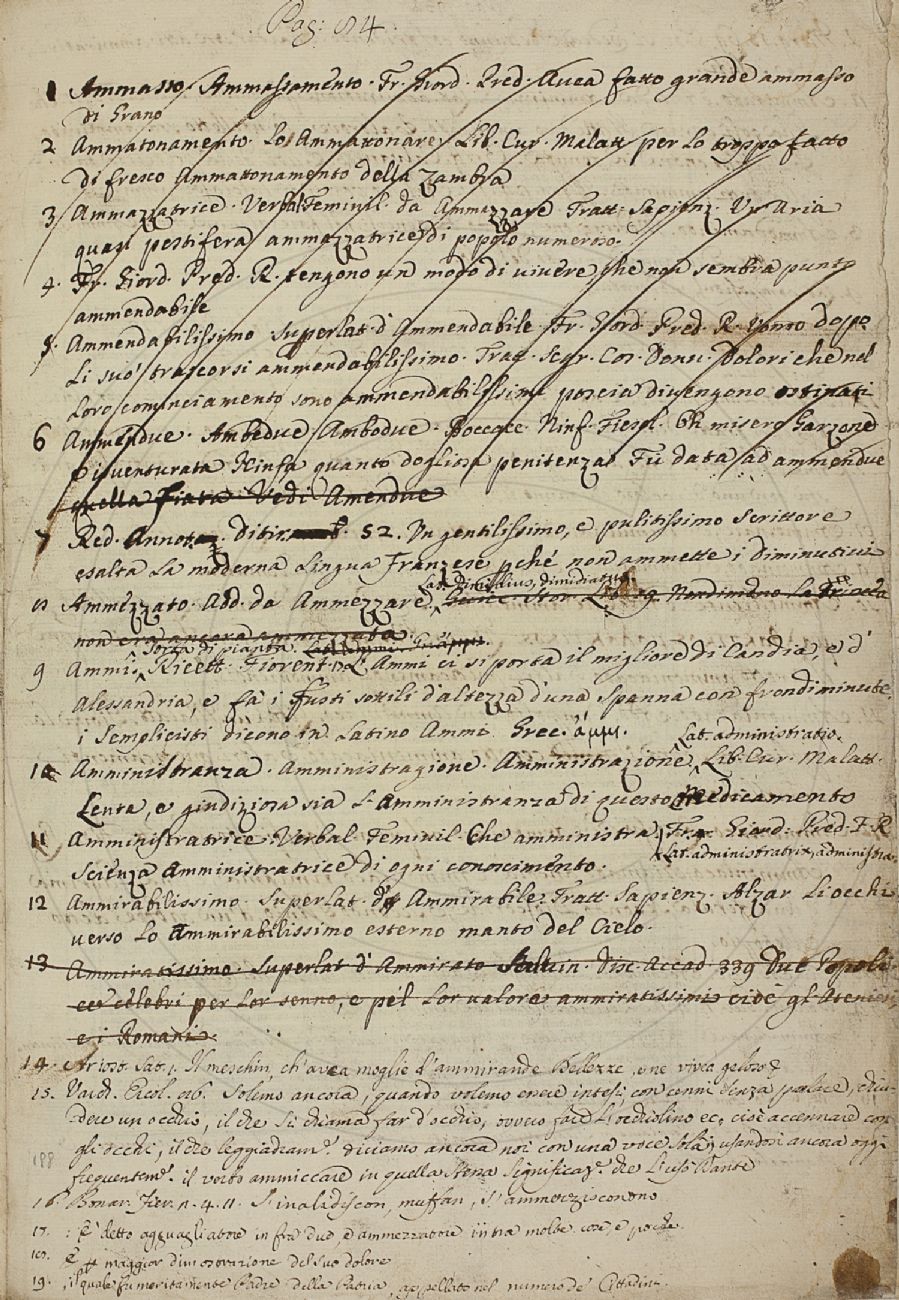 Pag: 84.
1 Ammasso Ammassamento. Fr. Giord. Pred. Avea fatto grande ammasso
di Grano
2 Ammatonamento. Lo Ammattonare. Lib. Cur. Malatt per lo troppo fatto
di fresco Ammattonamento della Zambra
3 Ammazzatrice. Verbal Feminil. da Ammazzare Tratt. Sapienz. Un'Aria
quasi pestifera ammazzatrice di popolo numeroso.
4. Fr. Giord. Pred. R. tengono un modo di vivere che non sembra punto
ammendabile
5. Ammendabilissimo Superlat. d'Ammendabile. Fr. Giord. Pred. R. Uomo dopo
Li suoi trascorsi ammendabilissimo. Tratt. Segr. Cos. Donn. Dolori che nel
Loro cominciamento sono ammendabilissimi poscia divengono ostinati
6 Ammendue. Ambedue Ambodue. Boccacc. Ninf. Fiesol. Oh misero Garzone
O isventurata Ninfa quanto dogliosa penitenza Fu data ad ammendue
quella fiata Vedi Amendue
7 Red. Annotaz. Ditir. 52. Un gentilissimo, e pulitissimo Scrittore
esalta La moderna Lingua Franzese pché non ammette i Diminutivi
Lat. Dimidius, dimidiatus.
Ammezzato. Add. da Ammezzare. Stor. 9. Nondimeno La
non era ancora ammezzata
Sorta di pianta. Lat. Ammi.
9 Ammi. Ricett. Fiorent. L'Ammi ci si porta il migliore di Candia, e d'
Alessandria, e fà i fusti sottili d'altezza d'una spanna con frondi minute.
i Semplicisti dicono in Latino Ammi. Grec. ἄμμι.
Lat. administratio.
10 Amministranza. Amministragione. Amministrazione Lib. Cur. Malatt.
Lenta, e giudiziosa sia L'Amministranza di questo Medicamento
11 Amministratrice. Verbal Feminil. Che amministra. Fra Giord. Pred. F. R
Lat. administratrix, administra.
Scienza Amministratrice di ogni conoscimento.
12 Ammirabilissimo. Superlat. d' Ammirabile. Tratt. Sapienz. Alzar Li occhi
verso Lo Ammirabilissimo esterno manto del Cielo.
13 Ammiratissimo. Superlat. d'Ammirato Salvin. Disc. Accad. 339 Due Popoli
celebri per Lor senno, e pel Lor valore ammiratissimi cioè gl'Ateniesi,
e i Romani.
14. Ariost. Sat. 1. Il meschin, ch'avea moglie d'ammirande Bellezze, e ne vivea geloso
15. Varch. Ercol. 96. Solemo ancora, quando volemo essere intesi con cenni senza parlare, chiu-
dere un occhio, il che si chiama far d'occhio, ovvero fare L'occhiolino ec, cioè accennare con
gli occhi, il che leggiadram.e diciamo ancora noi con una voce sola, usandosi ancora oggi
188
frequentem.e il verbo ammiccare in quella stessa significaz.e che L'usò Dante
16. Bonar. Fier. n. 4. 11. S'invalidiscon, muffan, s'ammorzisconono
17. : è detto agguagliatore in fra due, e ammezzatore in tra molte cose, e poche.
18. È maggior dimostrazione del suo dolore
19. , il quale fu meritamente Padre della Patria, appellato nel numero de' Cittadini.